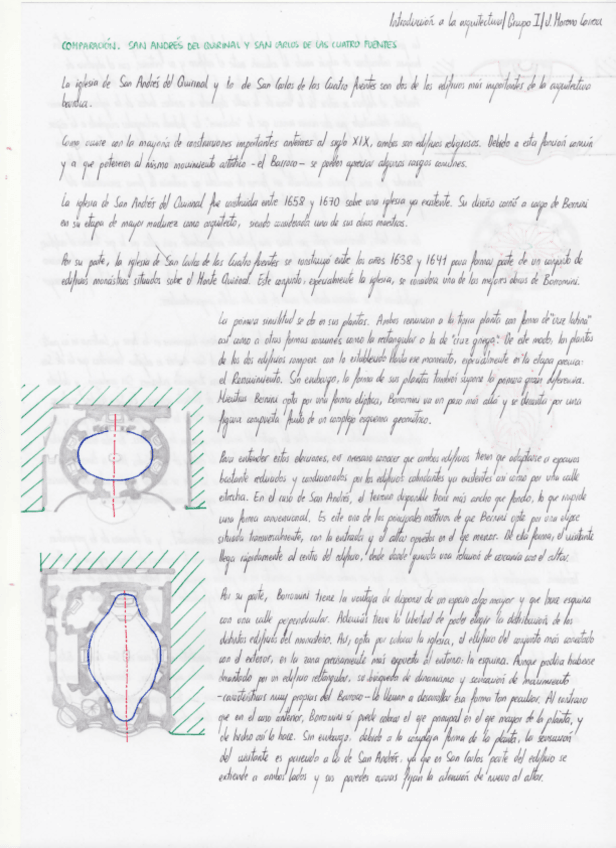 Introducción a la arquitectura/ Grupo I/ J. Moreno
COMPARACIÓN. SAN ANDRÉS DEL QUIRINAL Y SAN CARLOS DE LAS CUATRO FUENTES
La iglesia de San Andrés del Quirinal y la de San Carlos de las Cuatro Fuentes son dos de los edificios más importantes de la arquitectura
barroca.
Como ocurre con la mayoría de construcciones importantes anteriores al siglo XIX, ambos son edificios religiosos. Debido a esta función común
y a que pertenecen al mismo movimiento artístico -el Barroco- se pueden apreciar algunos rasgos comunes.
La iglesia de San Andrés del Quirinal fue construida entre 1658 y 1670 sobre una iglesia ya existente. Su diseño corrió a cargo de Bernini
en su etapa de mayor madurez como arquitecto, siendo considerada una de sus obras maestras.
Por su parte, la iglesia de San Carlos de las Cuatro Fuentes se construyó entre los años 1638 y 1641 para formar parte de un conjunto de
edificios monásticos situados sobre el Monte Quirinal. Este conjunto, especialmente la iglesia, se considera una de las mejores obras de Borromini.
La primera similitud se da en sus plantas. Ambas renuncian a la típica planta con forma de "cruz latina"
así como a otras formas comunes como la rectangular o la de "cruz griega". De este modo, las plantas
de los dos edificios rompen con lo establecido hasta ese momento, especialmente en la etapa previa:
el Renacimiento. Sin embargo, la forma de sus plantas también supone la primera gran diferencia.
Mientras Bernini opta por una forma elíptica, Borromini va un paso más allá y se decanta por una
figura compuesta fruto de un complejo esquema geométrico.
Para entender estas decisiones, es necesario conocer que ambos edificios tienen que adaptarse a espacios
bastante reducidos y condicionados por los edificios colindantes ya existentes así como por una calle
estrecha. En el caso de San Andrés, el terreno disponible tiene más ancho que fondo, lo que impide
una forma convencional. Es este uno de los principales motivos de que Bernini opte por una elipse
situada transversalmente, con la entrada y el altar opuestos en el eje menor. De esta forma, el visitante
llega rápidamente al centro del edificio, desde donde guarda una relación de cercanía con el altar.
Por su parte, Borromini tiene la ventaja de disponer de un espacio algo mayor y que hace esquina
con una calle perpendicular. Además tiene la libertad de poder elegir la distribución de los
distintos edificios del monasterio. Así, opta por colocar la iglesia, el edificio del conjunto más conectado
con el exterior, en la zona precisamente más expuesta al entorno: la esquina. Aunque podría haberse
decantado por un edificio rectangular, su búsqueda de dinamismo y sensación de movimiento
-características muy propias del Barroco- le llevan a desarrollar esa forma tan peculiar. Al contrario
que en el caso anterior, Borromini sí puede colocar el eje principal en el eje mayor de la planta, y
de hecho así lo hace. Sin embargo, debido a la compleja forma de la planta, la sensación
del visitante es parecida a la de San Andrés, ya que en San Carlos parte del edificio se
extiende a ambos lados y sus paredes curvas fijan la atención de nuevo al altar.